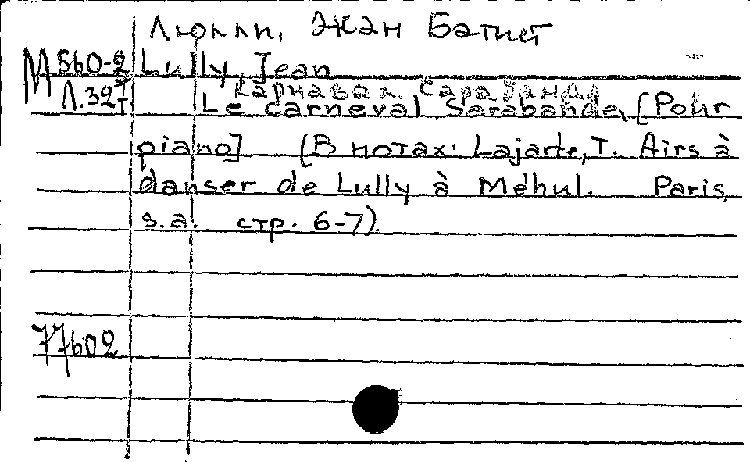 Люлли, Жан Батист
М 560-2 Lully, Jean
Карнавал. Сарабанда
Л.32т Le carneval Sarabande, [Pour
piano] (В нотах: Lajarte, T. Airs à
danser de Lully à Méhul. Paris,
s.a. стр. 6-7)
77602